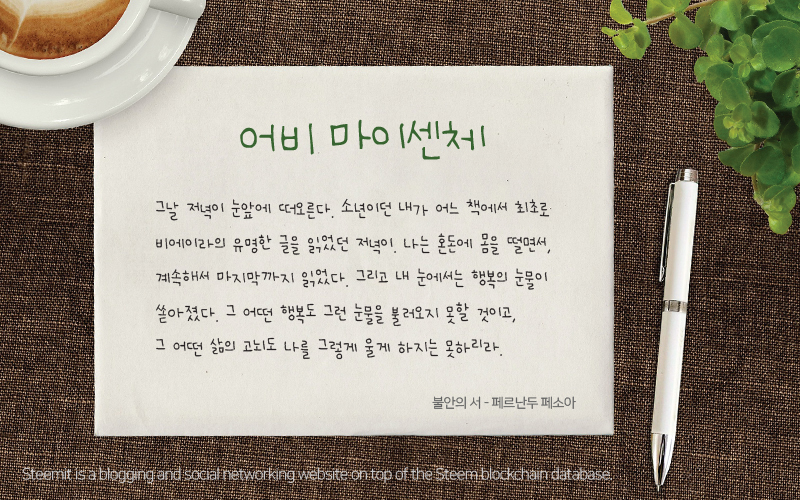 어비 마이센체
그날 저녁이 눈앞에 떠오른다. 소년이던 내가 어느 책에서 최초로
비에이라의 유명한 글을 읽었던 저녁이. 나는 혼돈에 몸을 떨면서,
계속해서 마지막까지 읽었다. 그리고 내 눈에서는 행복의 눈물이
쏟아졌다. 그 어떤 행복도 그런 눈물을 불러오지 못할 것이고,
그 어떤 삶의 고뇌도 나를 그렇게 울게 하지는 못하리라.
불안의 서 - 페르난두 페소아
Steemit is a blogging and social networking website on top of the Steem blockchain database.